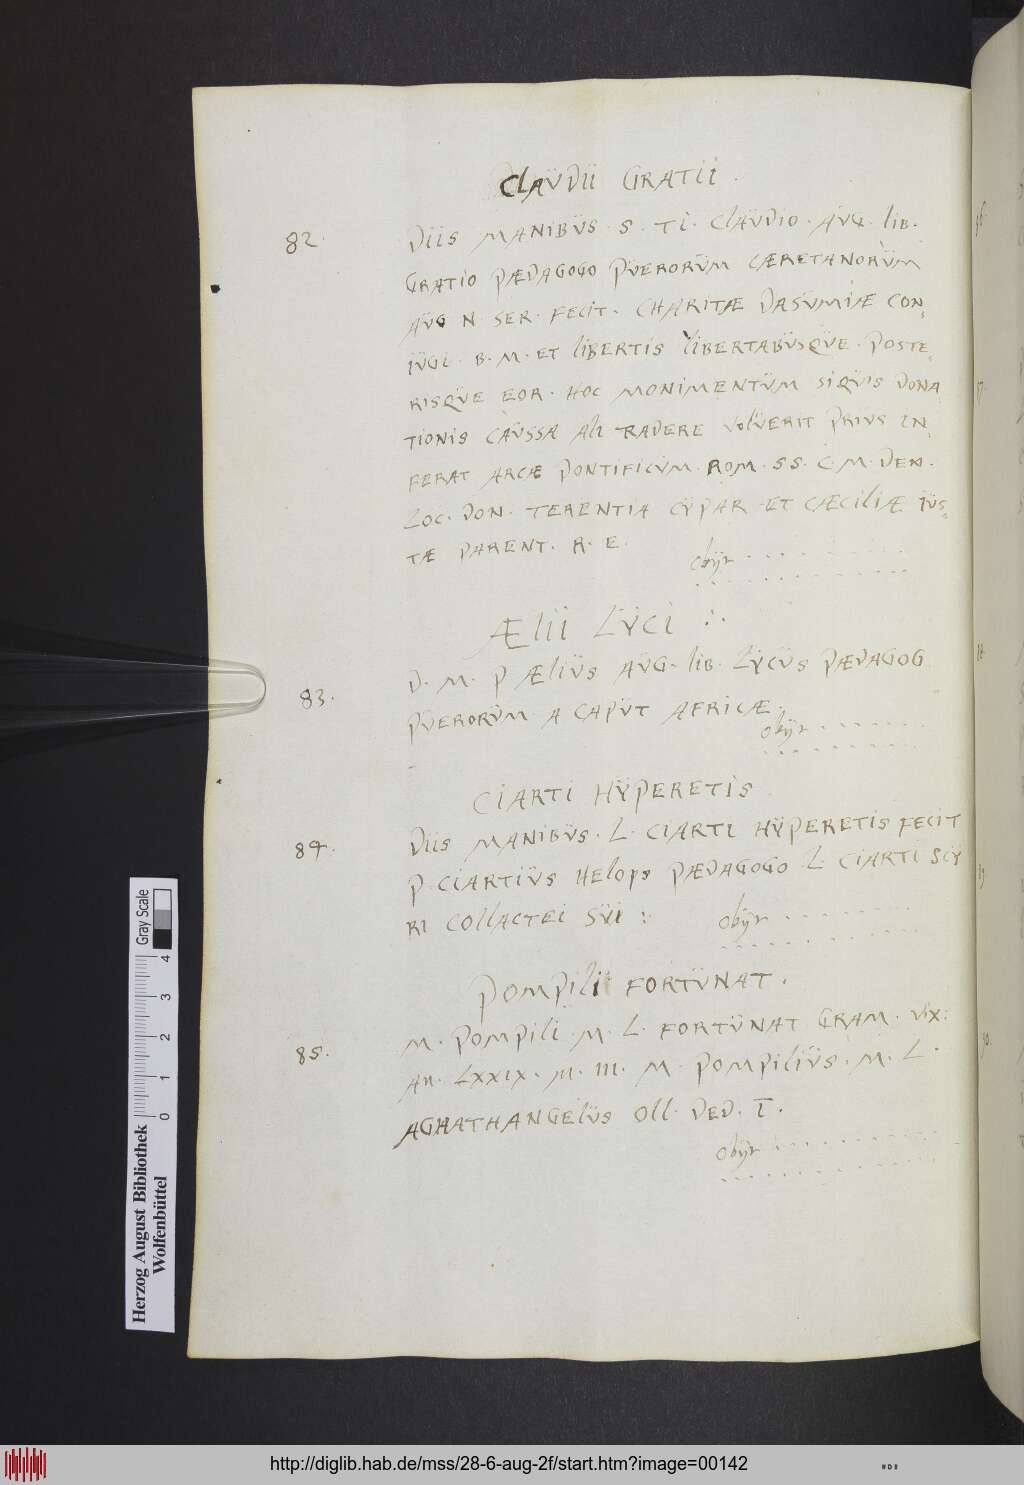 CLAUDII GRATII.
82. DIIS MANIBUS. S. TI. CLAUDIO. AUG. LIB.
GRATIO PÆDAGOGO PUERORUM CÆRETANORUM
AUG N. SER. FECIT. CHARITÆ DASUMIÆ CON-
IUGI. B. M. ET LIBERTIS LIBERTABUSQUE. POSTE-
RISQUE EOR. HOC MONIMENTUM SIQUIS DONA-
TIONIS CAUSSA ALI RADERE VOLUERIT PRIUS IN-
FERAT ARCÆ PONTIFICUM. ROM. SS. C. M. DEN.
LOC. DON. TERENTIA CYPAR. ET CÆCILIÆ IUS-
TÆ PARENT. R. E.
obijt
ÆLII LYCI
83. D. M. P ÆLIUS AUG. LIB. LYCUS PÆDAGOG
PUERORUM. A CAPUT AFRICÆ.
obijt
CIARTI HYPERETIS
84. DIIS MANIBUS. L. CIARTI HYPERETIS FECIT
P. CIARTIUS HELOPS PÆDAGOGO L. CIARTI SCY
RI COLLACTEI SUI :
obijt
POMPILII FORTUNAT.
85. M. POMPILI. M. L. FORTUNAT GRAM. VIX:
AN. LXXIX. M. III. M. POMPILIUS. M. L.
AGHATHANGELUS OLL. DED. I.
obijt
Herzog August Bibliothek
Wolfenbüttel
Gray Scale
0 1 2 3 4
http://diglib.hab.de/mss/28-6-aug-2f/start.htm?image=00142